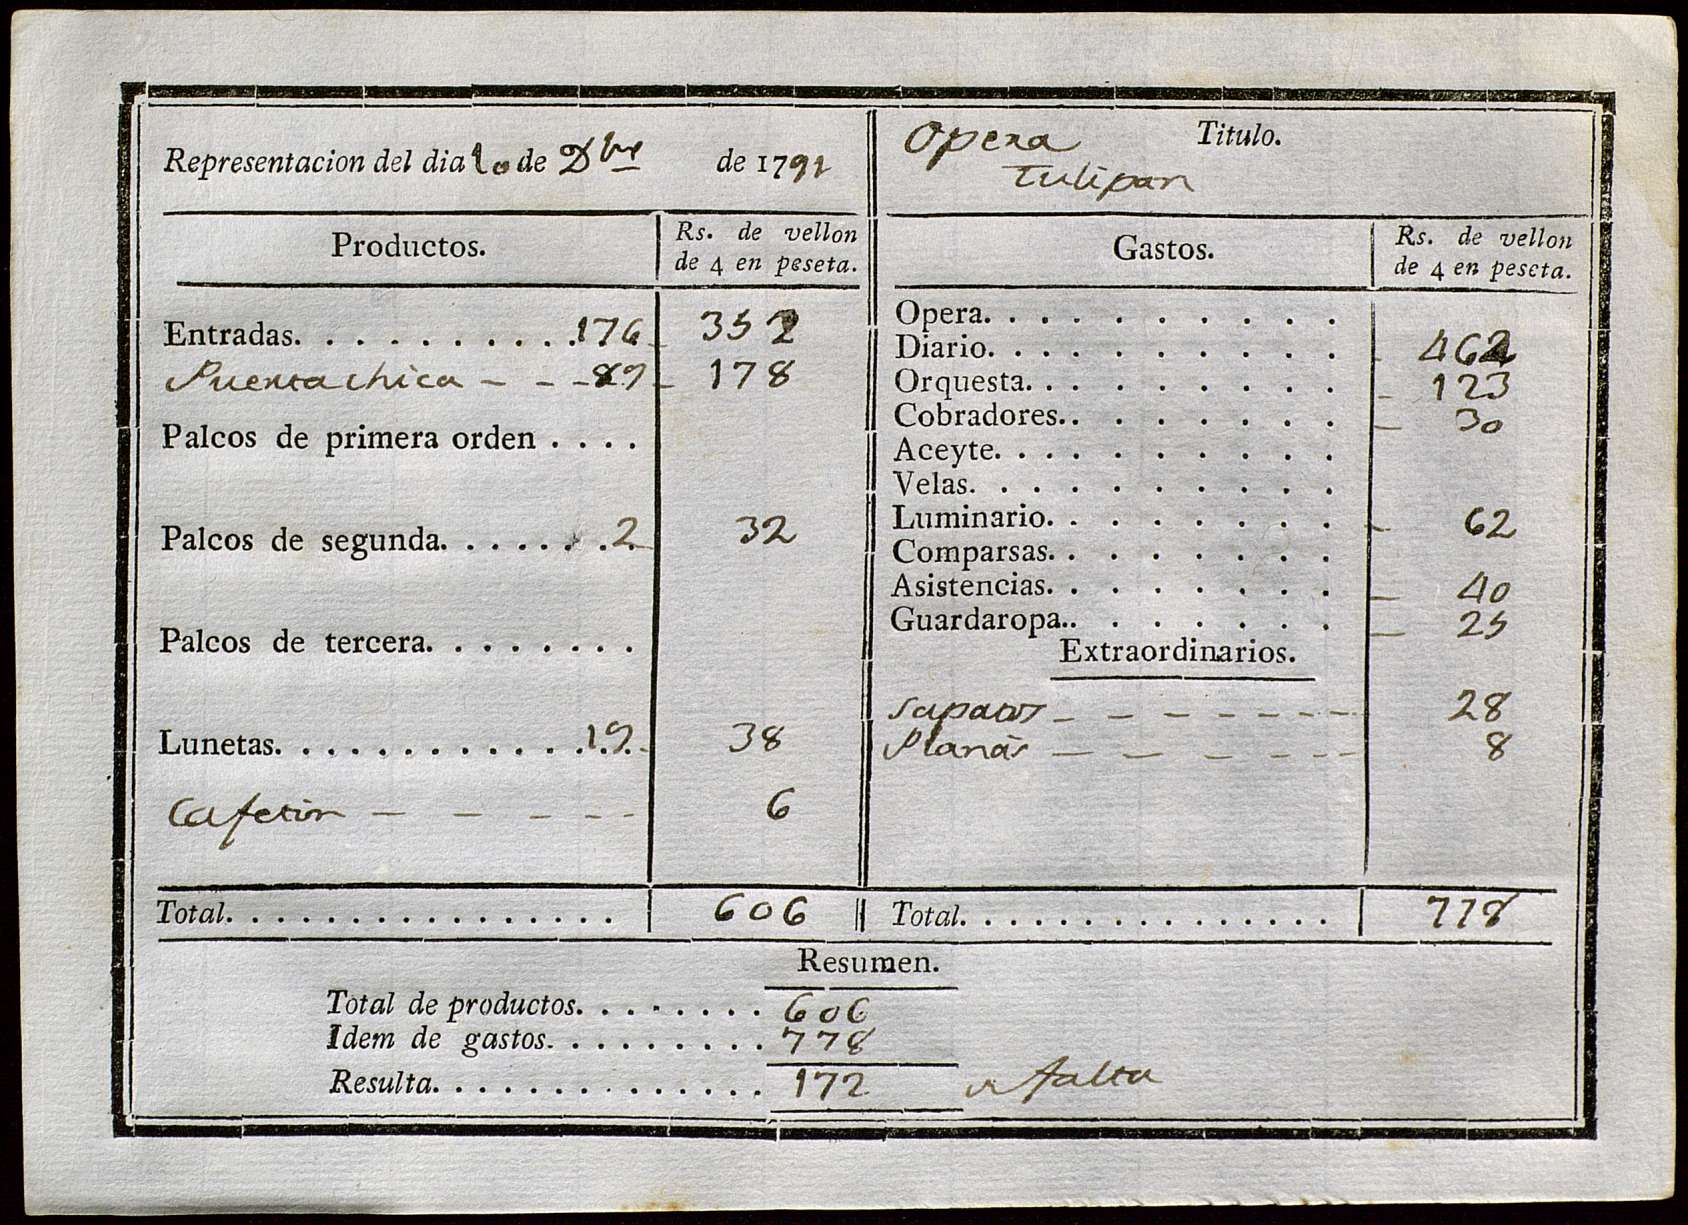 Representacion del dia 10 de Dbre de 1791
Productos. Rs. de vellon
de 4 en peseta.
Entradas. 176 352
Puerta chica 89 178
Palcos de primera orden
Palcos de segunda. 2 32
Palcos de tercera.
Lunetas. 19 38
Cafetin 6
Total. 606
Opera Titulo.
Tulipan
Gastos. Rs. de vellon
de 4 en peseta.
Opera.
Diario. 462
Orquesta. 123
Cobradores. 30
Aceyte.
Velas.
Luminario. 62
Comparsas.
Asistencias. 40
Guardaropa. 25
Extraordinarios.
Sapatos 28
Planas 8
Total. 778
Resumen.
Total de productos. 606
Idem de gastos. 778
Resulta. 172 falta